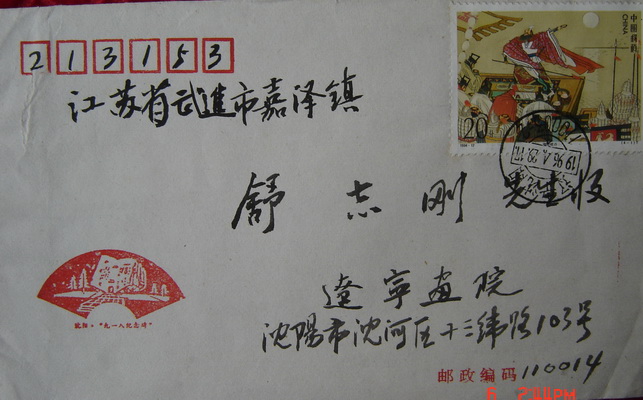 213153
江苏省武进市嘉泽镇
中国邮政
CHINA
20
1996.4.29.17
舒志刚 先生收
沈阳·"九一八纪念碑"
遼寧画院
沈陽市沈河区十三緯路103号
邮政编码 110014